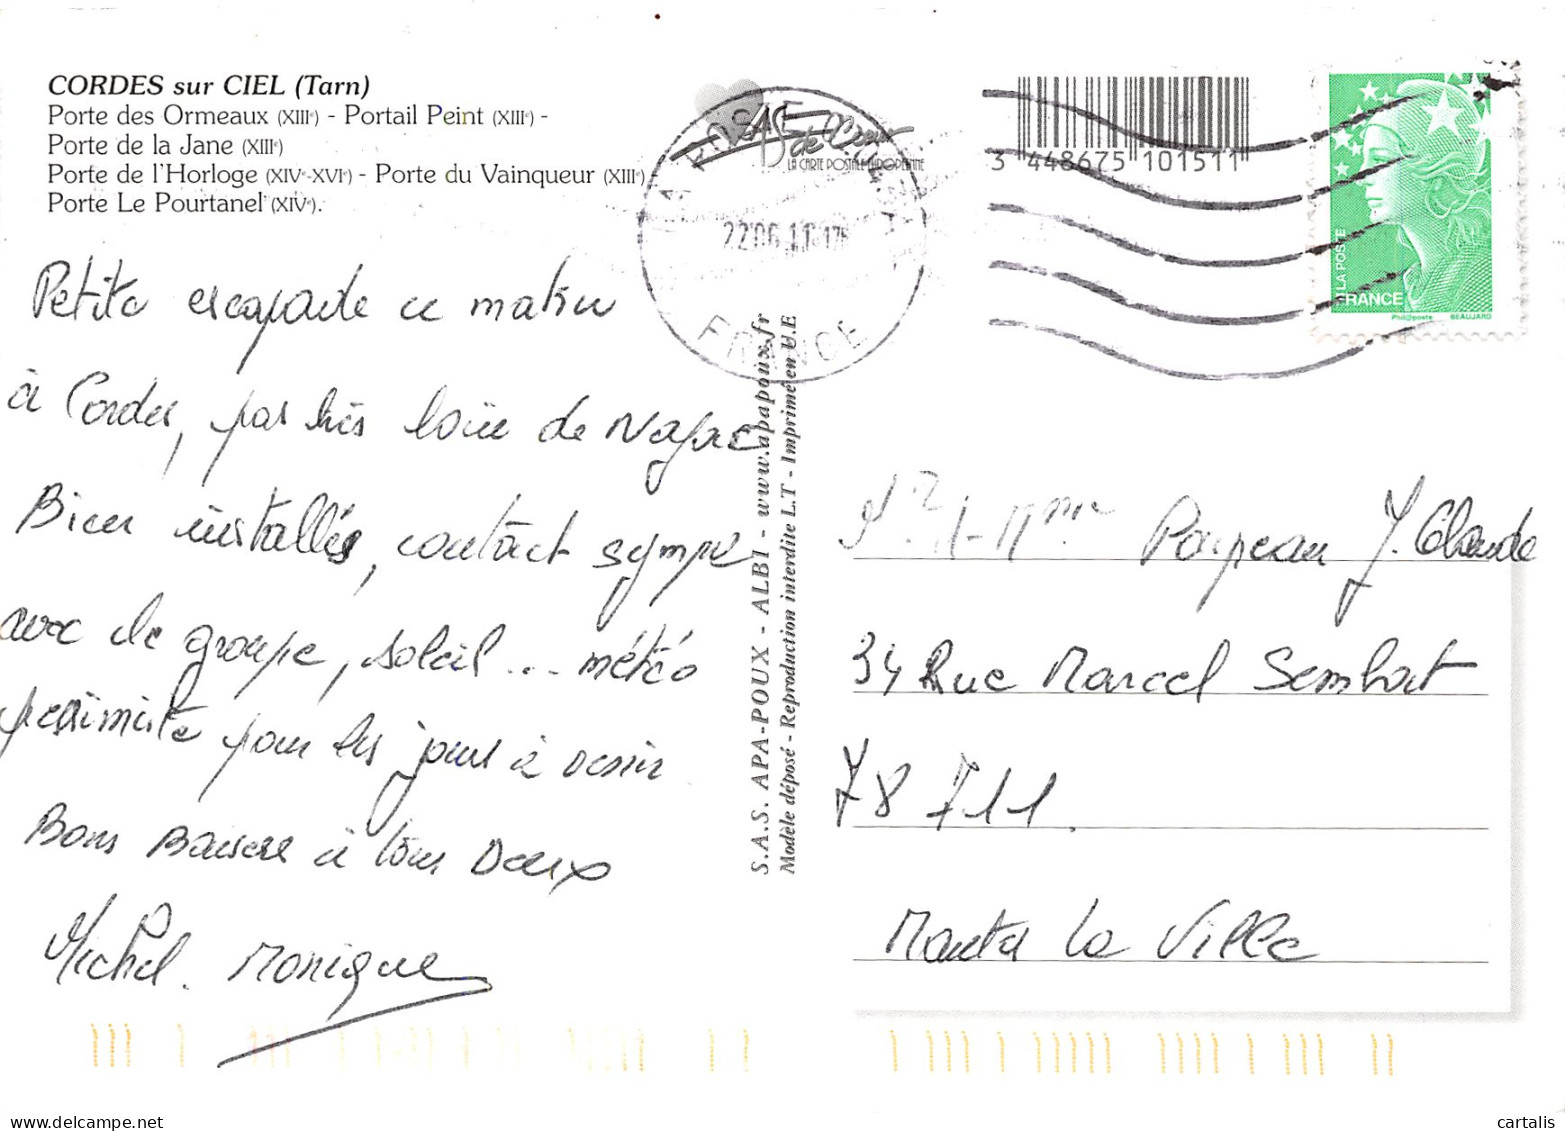 CORDES sur CIEL (Tarn)
Porte des Ormeaux (XIIIe) - Portail Peint (XIIIe) -
Porte de la Jane (XIIIe)
Porte de l'Horloge (XIVe-XVIe) - Porte du Vainqueur (XIIIe)
Porte Le Pourtanel (XIVe).
Petite escapade ce matin
à Cordes, pas très loin de Najac
Bien installés, contact sympa
avec le groupe, soleil ... météo
pessimiste pour les jours à venir
Bons Baisers à tous Deux
Michel. Monique
LA POSTE
22 06 11
FRANCE
AS de Cœur
LA CARTE POSTALE EUROPEENNE
3 448675 101511
LA POSTE
FRANCE
Phil@poste BEAUJARD
S.A.S. APA-POUX - ALBI - www.apapoux.fr
Modèle déposé - Reproduction interdite L.T - Imprimé en U.E
Poupeau J. Claude
34 Rue Marcel Sembat
78 711.
Manta La Ville
cartalis